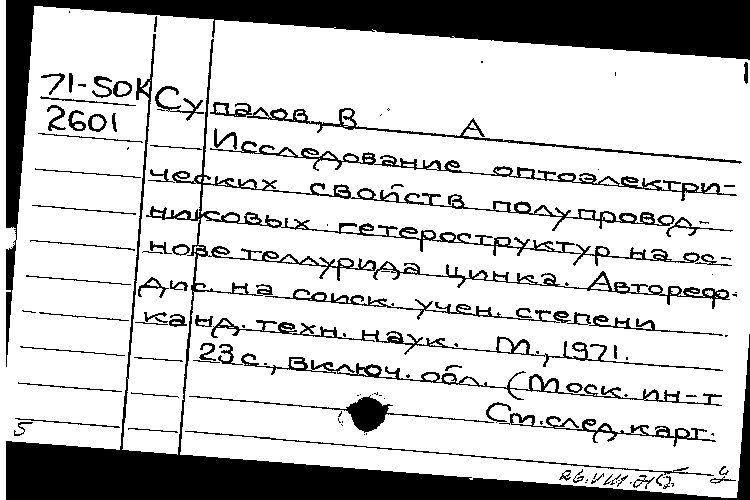 71-SOK
2601
Супалов, В А
Исследование оптоэлектри-
ческих свойств полупровод-
никовых гетероструктур на ос-
нове теллурида цинка. Автореф.
дис. на соиск. учен. степени
канд. техн. наук. М., 1971.
23 с., включ. обл. (Моск. ин-т
См. след. карт.
5